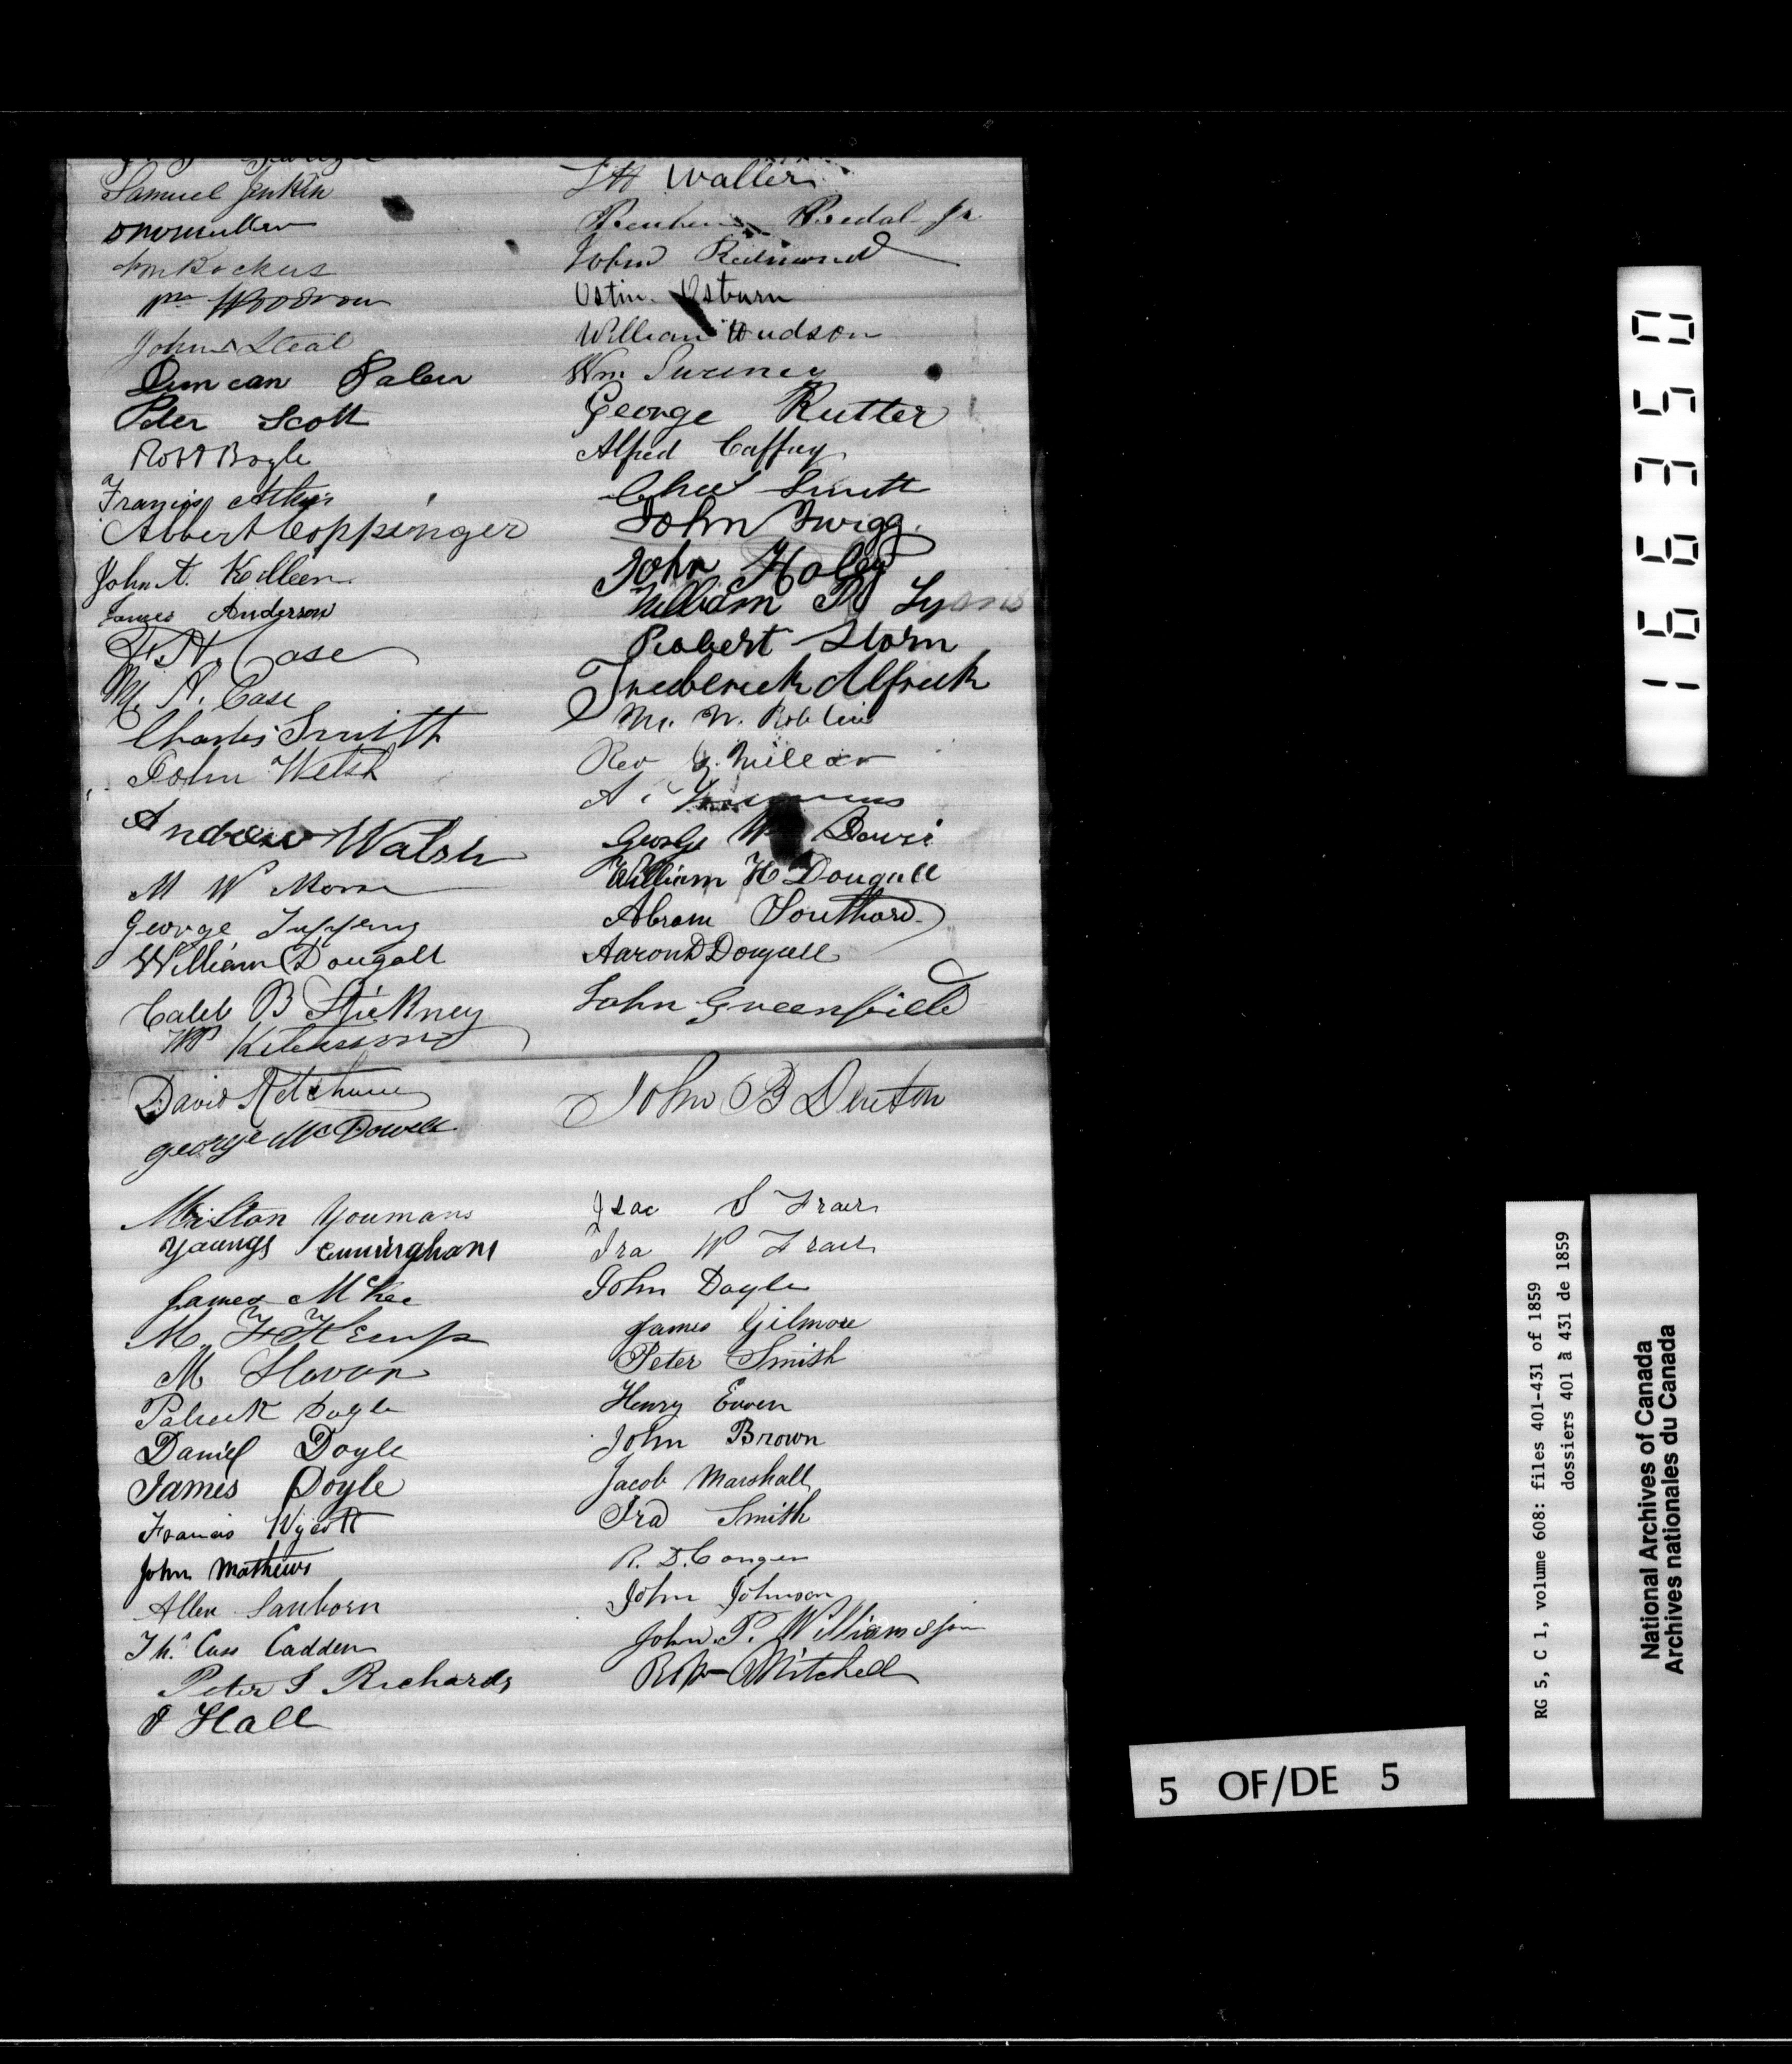 Samuel Jenkin
John Steal
Duncan
Peter Scott
Robt Bogle
Francis
Albert Coppinger
John A. Kelleen
James Anderson
Case
M. A. Case
Charles Smith
John Welsh
Andrew Walsh
M W Morse
George
William Dougall
Caleb B Stickney
David Ketchum
George McDowell
Milton Youmans
Youngs Cunningham
James McKee
M. F. Kemp
M Slaven
Patrick Doyle
Daniel Doyle
James Doyle
Francis Wycott
John Mathews
Allen Sanborn
Cadden
Peter S Richards
Hall
Waller
Jr
John Redmond
Ostin Osburn
William Hudson
Wm Sweeney
George Rutter
Alfred Caffrey
Smith
John Twigg
John Haley
William R Lyons
Robert Storm
Frederick Alfrek
Roblin
Rev G. Miller
George W Davis
William H Dougall
Abram Southard
Aaron D Dougall
John Greenfield
John B Denton
Isac S Frair
Ira W Frair
John Doyle
James Gilmore
Peter Smith
Henry
John Brown
Jacob Marshall
Ira Smith
R. D. Conger
John Johnson
John P. Williamson
Mitchell
5 OF/DE 5
166350
RG 5, C 1, volume 608: files 401-431 of 1859
dossiers 401 à 431 de 1859
National Archives of Canada
Archives nationales du Canada